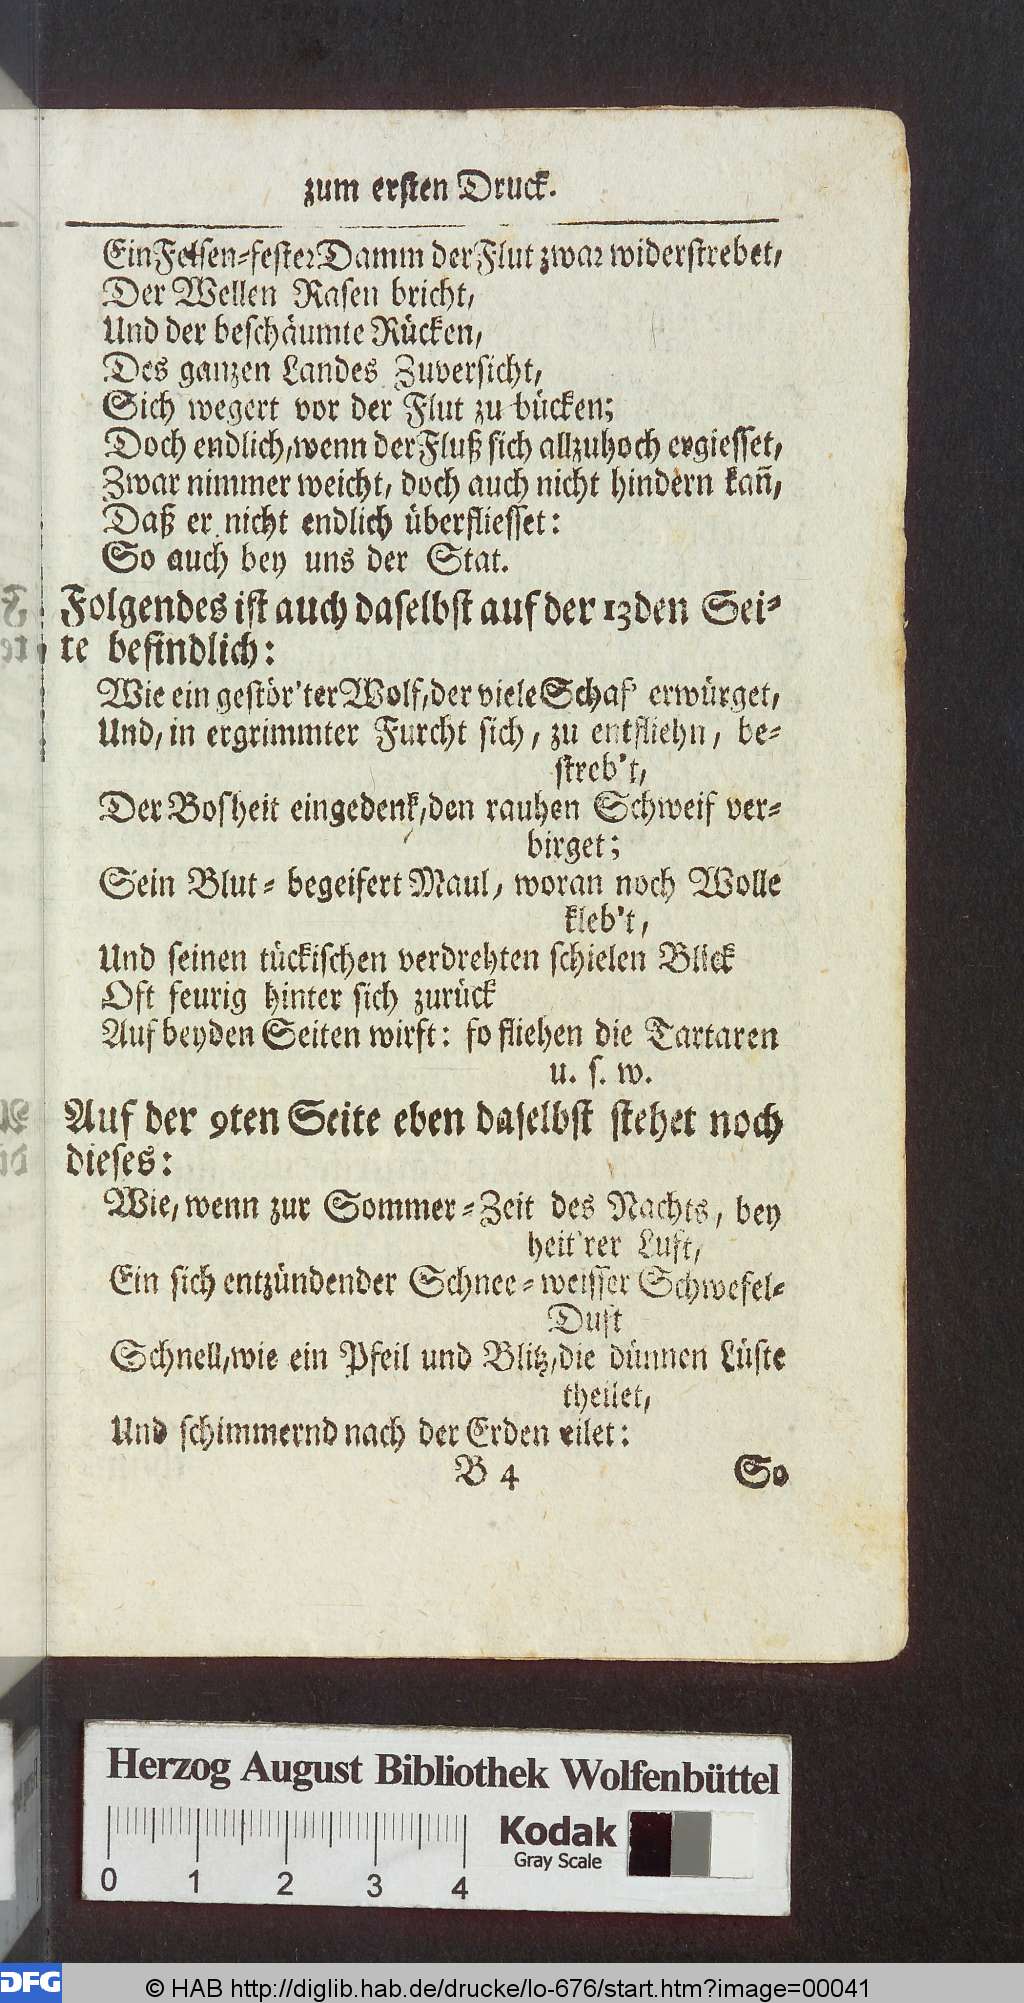 zum ersten Druck.
Ein Felsen-fester Damm der Flut zwar widerstrebet,
Der Wellen Rasen bricht,
Und der beschäumte Rücken,
Des ganzen Landes Zuversicht,
Sich wegert vor der Flut zu bücken;
Doch endlich, wenn der Fluß sich allzuhoch ergiesset,
Zwar nimmer weicht, doch auch nicht hindern kañ,
Daß er nicht endlich überfliesset:
So auch bey uns der Stat.
Folgendes ist auch daselbst auf der 13den Sei-
te befindlich:
Wie ein gestör'ter Wolf, der viele Schaf' erwürget,
Und, in ergrimmter Furcht sich, zu entfliehn, be-
streb't,
Der Bosheit eingedenk, den rauhen Schweif ver-
birget;
Sein Blut-begeifert Maul, woran noch Wolle
kleb't,
Und seinen tückischen verdrehten schielen Blick
Oft feurig hinter sich zurück
Auf beyden Seiten wirft: so fliehen die Tartaren
u. s. w.
Auf der 9ten Seite eben daselbst stehet noch
dieses:
Wie, wenn zur Sommer-Zeit des Nachts, bey
heit'rer Luft,
Ein sich entzündender Schnee-weisser Schwefel-
Duft
Schnell, wie ein Pfeil und Blitz, die dünnen Lüfte
theilet,
Und schimmernd nach der Erden eilet:
B 4 So
Herzog August Bibliothek Wolfenbüttel
Kodak
Gray Scale
0 1 2 3 4
DFG © HAB http://diglib.hab.de/drucke/lo-676/start.htm?image=00041